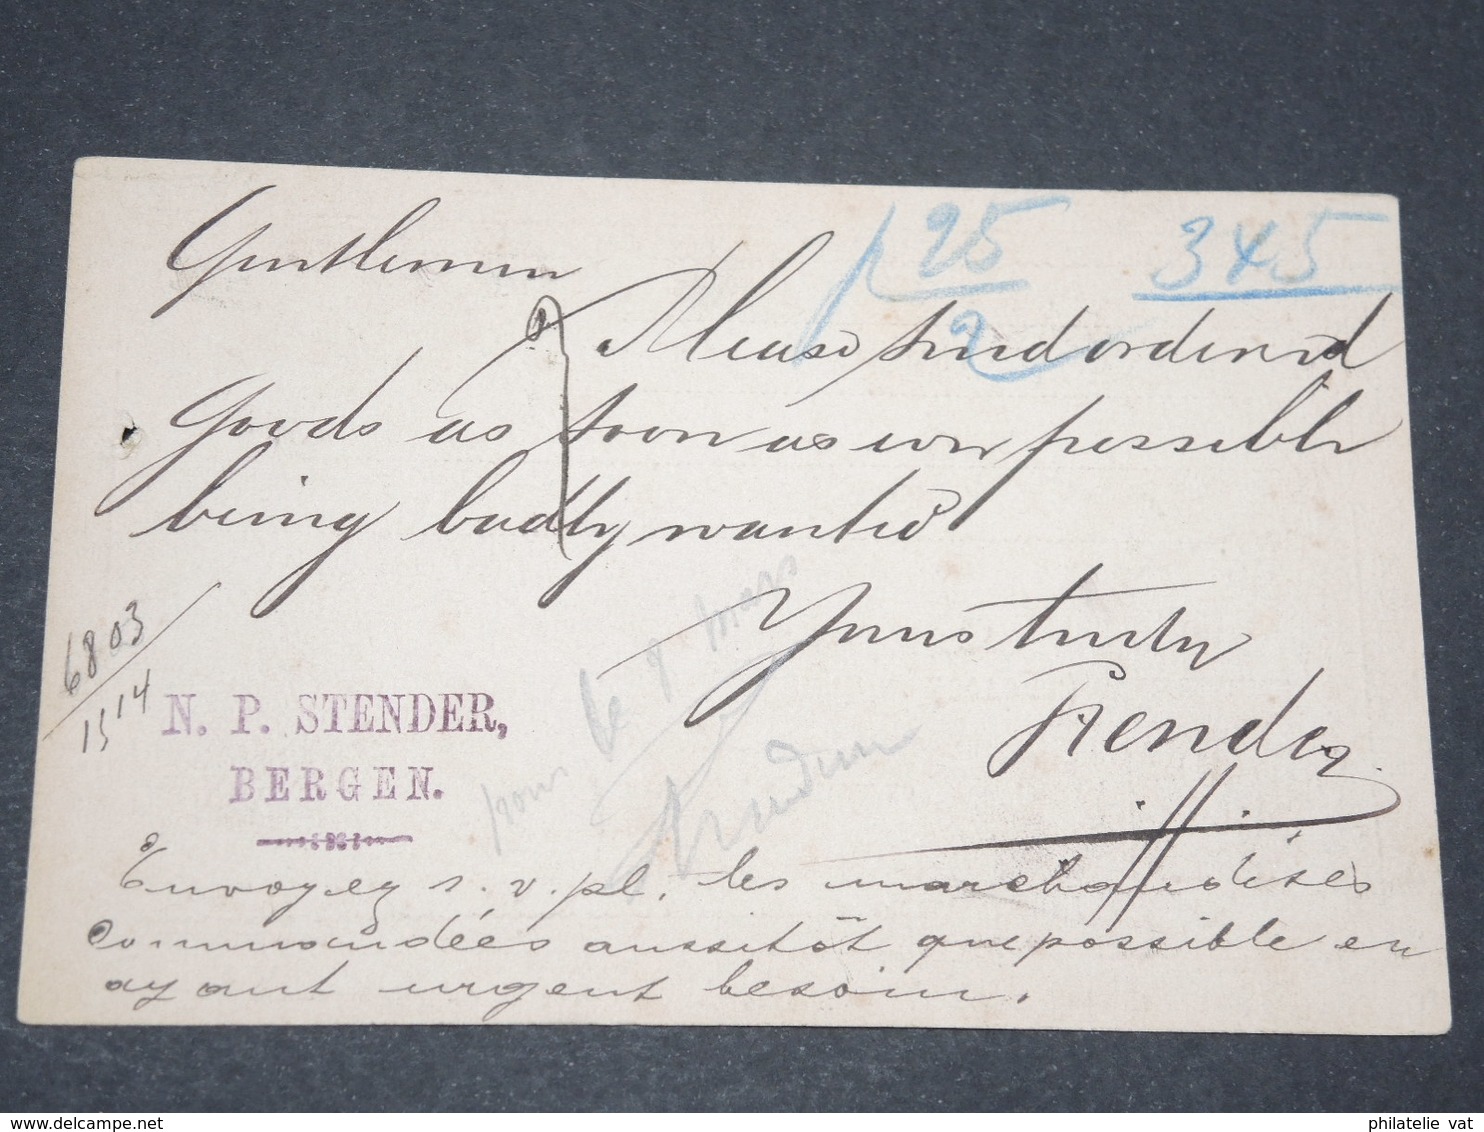 Gentlemen
p 25/2 345
Please send ordered
Goods as soon as ever possible
being badly wanted
Yours truly
Stender
6803
1514
N. P. STENDER,
BERGEN.
pour le 9 mars
Envoyez s. v. pl. les marchandises
commandées aussitôt que possible en
ayant urgent besoin.
philatelie vat
delcampe.net